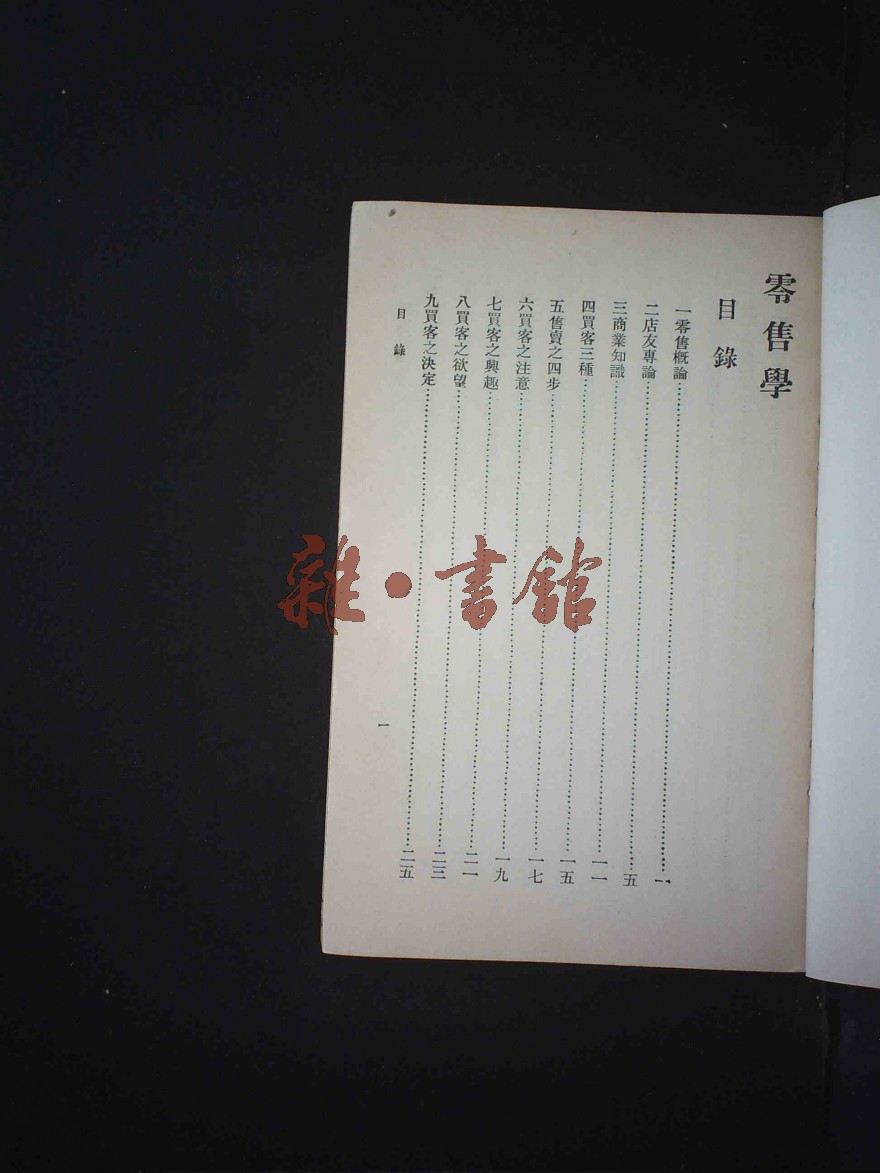 零售學
目錄
一零售概論……一
二店友專論……五
三商業知識……一一
四買客三種……一五
五售賣之四步……一七
六買客之注意……一九
七買客之興趣……二一
八買客之欲望……二三
九買客之決定……二五
目錄
一
雜·書館